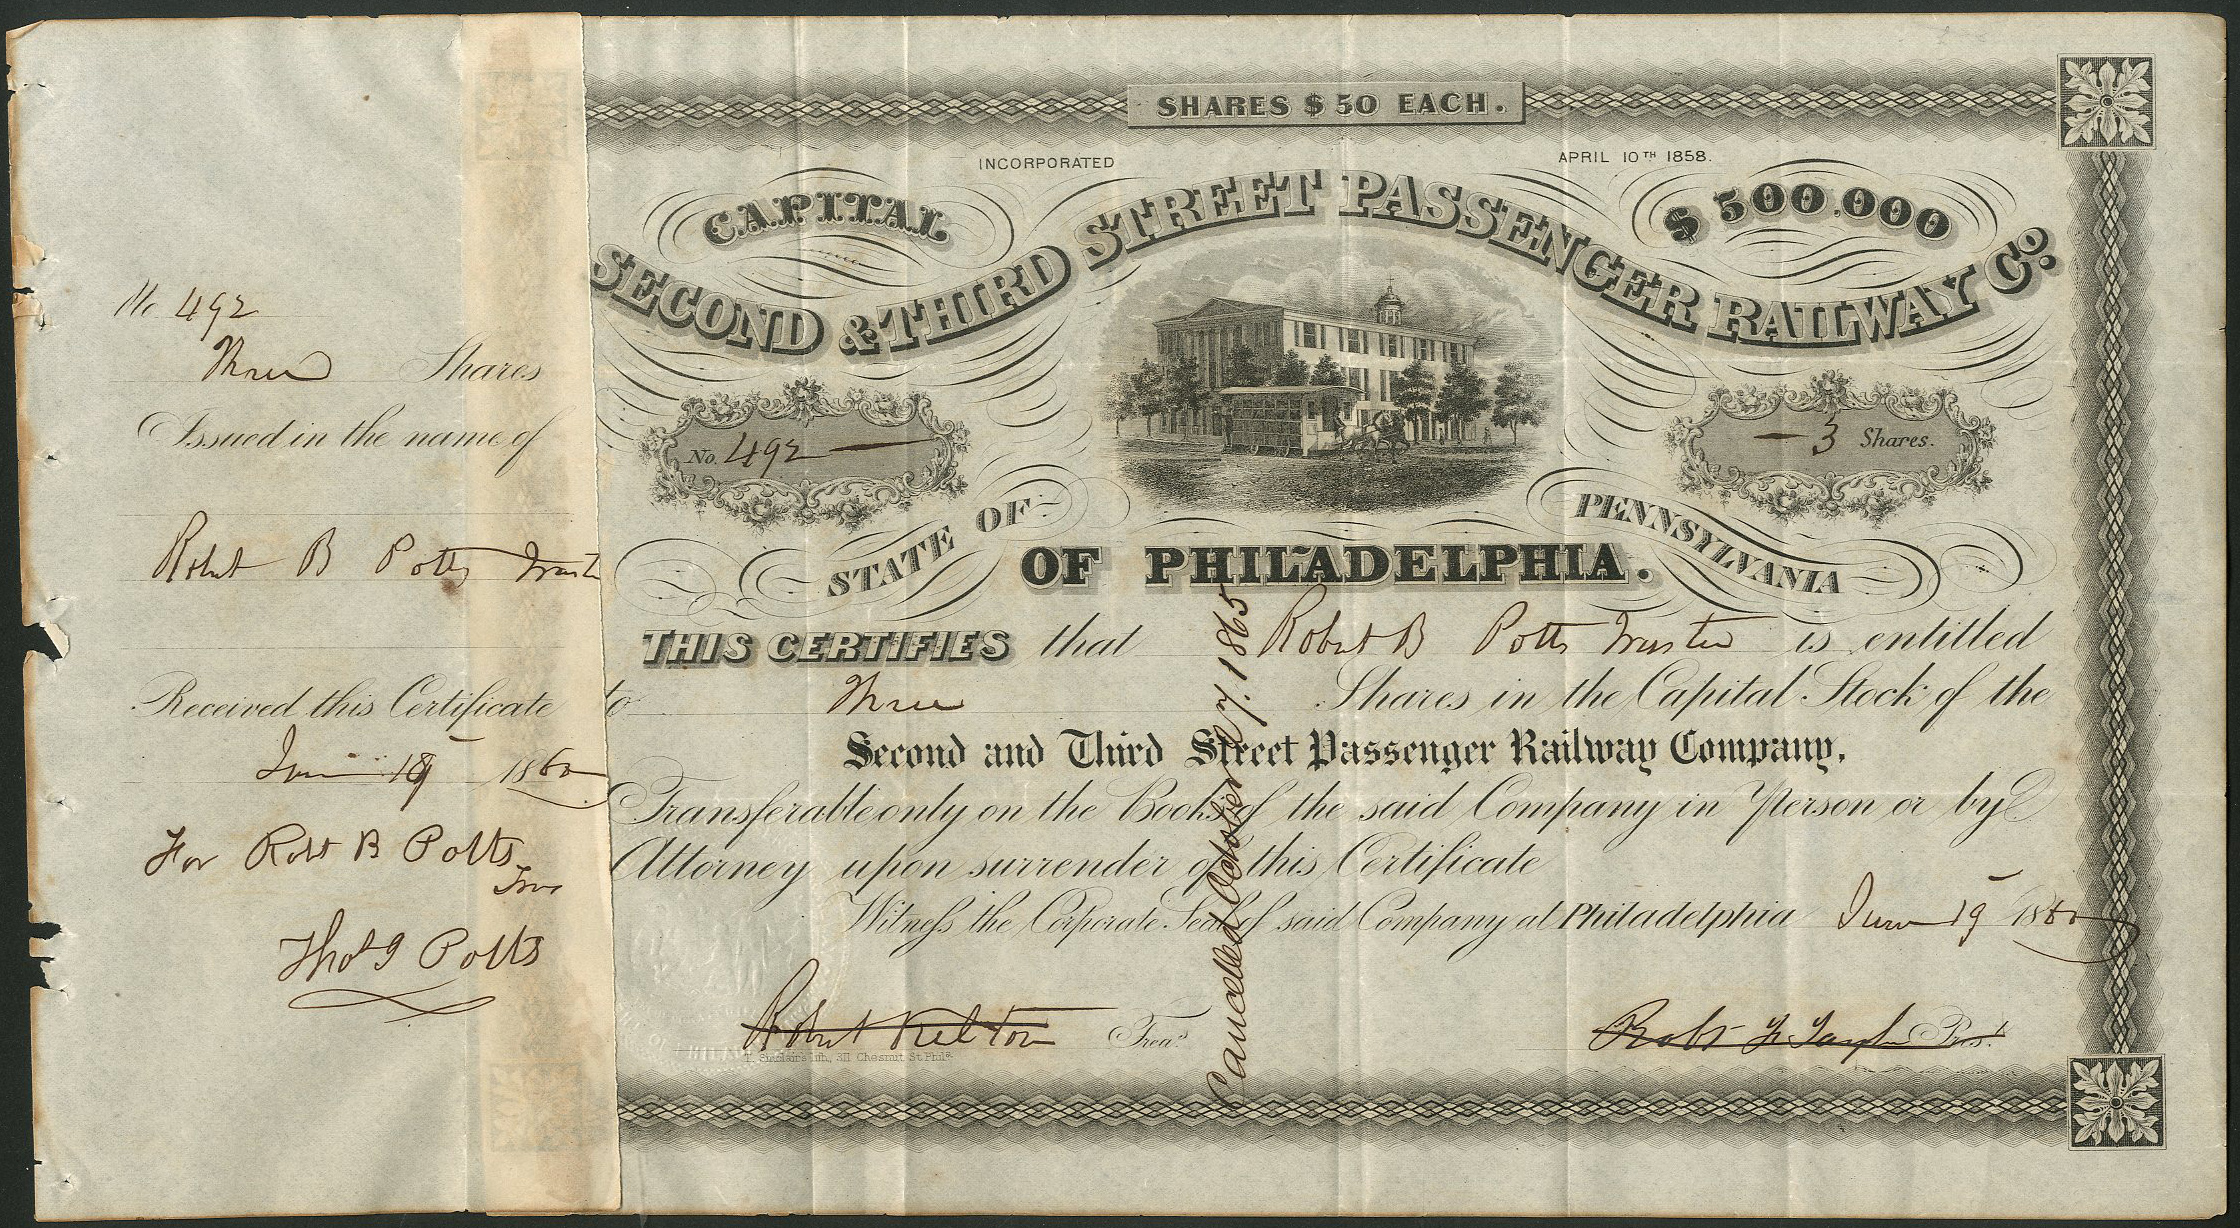 No 492
Three Shares
Issued in the name of
Robert B Potts Trustee
Received this Certificate
June 19 1860
For Robt B Potts
Trus
Thos J Potts
SHARES $50 EACH.
INCORPORATED APRIL 10TH 1858.
CAPITAL $500,000
SECOND & THIRD STREET PASSENGER RAILWAY Co.
No. 492
3 Shares.
STATE OF PENNSYLVANIA
OF PHILADELPHIA.
THIS CERTIFIES that Robert B Potts Trustee is entitled
to Three Shares in the Capital Stock of the
Second and Third Street Passenger Railway Company,
Transferable only on the Books of the said Company in Person or by
Attorney upon surrender of this Certificate
Witness the Corporate Seal of said Company at Philadelphia June 19 1860
Robert Kelton Treas.
Robt F Taylor Prest.
T. Sinclair's lith., 311 Chesnut St. Phila.
Cancelled October 27. 1865